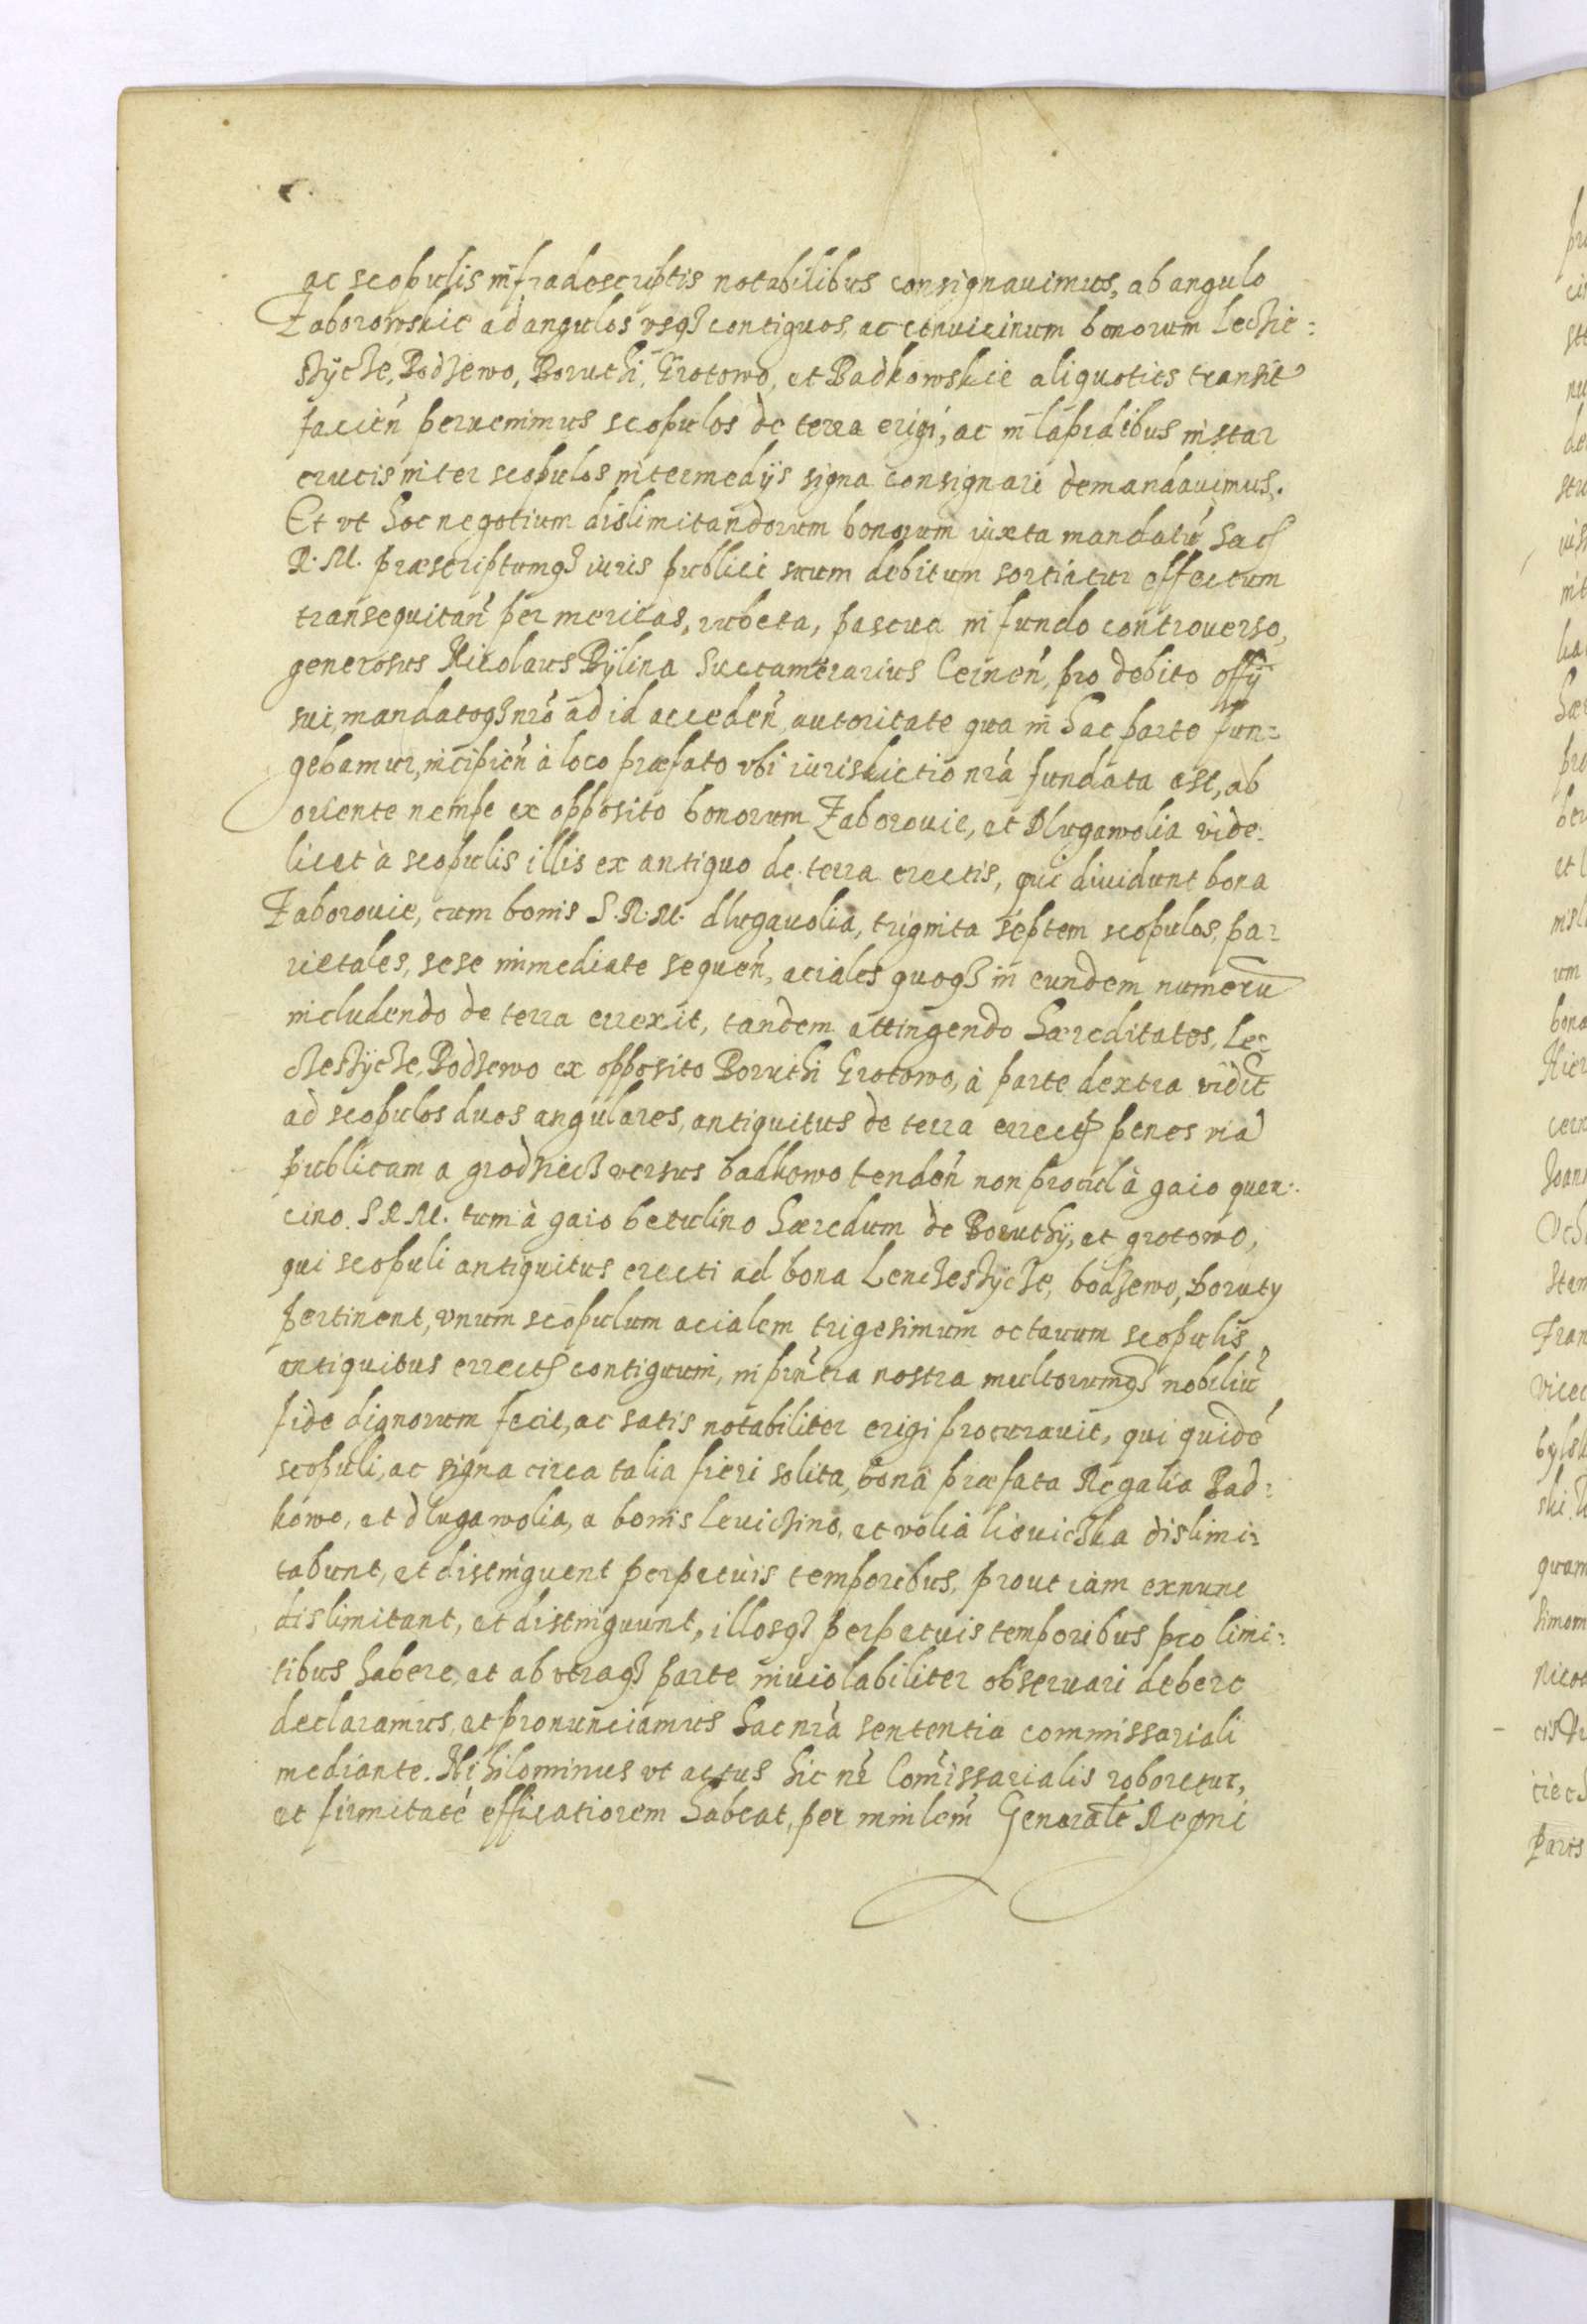 ac scopulis infradescriptis notabilibus consignauimus, ab angulo
Zaborowskie ad angulos usq3 contiguos, ac conuicinum bonorum Lechie=
Bodzewo, Boruchi, Grotowo, et Badkowskie aliquoties transit
facien̄ peruenimus scopulos de terra erigi, ac in lapidibus instar
crucis inter scopulos intermedijs signa consignari demandauimus.
Et vt hoc negotium dislimitandorum bonorum iuxta mandatū Sac
R. M. præscriptumq3 iuris publici suum debitum sortiatur effectum
transequitan̄ per mericas, rubeta, pascua in fundo controuerso,
generosus Nicolaus Bÿlina Succamerarius Cernen̄, pro debito offÿ
sui, mandatoq3 nr̄o ad id acceden̄, autoritate qua in hac parte fun=
gebamur, incipien̄ à loco præfato vbi iurisdictio nr̄a fundata est, ab
oriente nempe ex opposito bonorum Zaborouie, et Dlugawolia vide=
licet à scopulis illis ex antiquo de terra erectis, qui diuidunt bona
Zaborouie, cum bonis S. R. M. dlugauolia, triginta septem scopulos, pa=
rietales, sese immediate sequen̄, aciales quoq3 in eundem numerū
includendo de terra errexit, tandem attingendo hæreditates, Le=
Bodzewo ex opposito Boruthi Grotowo, à parte dextra vidlt
ad scopulos duos angulares, antiquitus de terra errect penes viā
publicam a versus badkowo tenden̄ non procul à gaio quer=
cino S R M. tum à gaio betulino hæredum de Boruthÿ, et grotowo,
qui scopuli antiquitus erecti ad bona bodzewo, boruty
pertinent, vnum scopulum acialem trigesimum octauum scopulis
antiquitus errect contiguum, in prn̄tia nostra multorumq3 nobiliū
fide dignorum fecit, ac satis notabiliter erigi procurauit, qui quidē
scopuli, ac signa circa talia fieri solita, bona præfata Regalia Bad=
kowo, et dlugawolia, a bonis leuichino, et volia liouichka dislimi=
tabunt, et distinguent perpetuis temporibus, prout iam exnunc
dislimitant, et distinguunt, illosq3 perpetuis temporibus pro limi=
tibus habere, et ab vtraq3 parte inuiolabiliter obseruari debere
declaramus, et pronunciamus hac nr̄a sententia commissariali
mediante. Nihilominus vt actus hic nr̄ Com̄issarialis roboretur,
et firmitatē efficatiorem habeat, per minlem̄ Generalē Regni